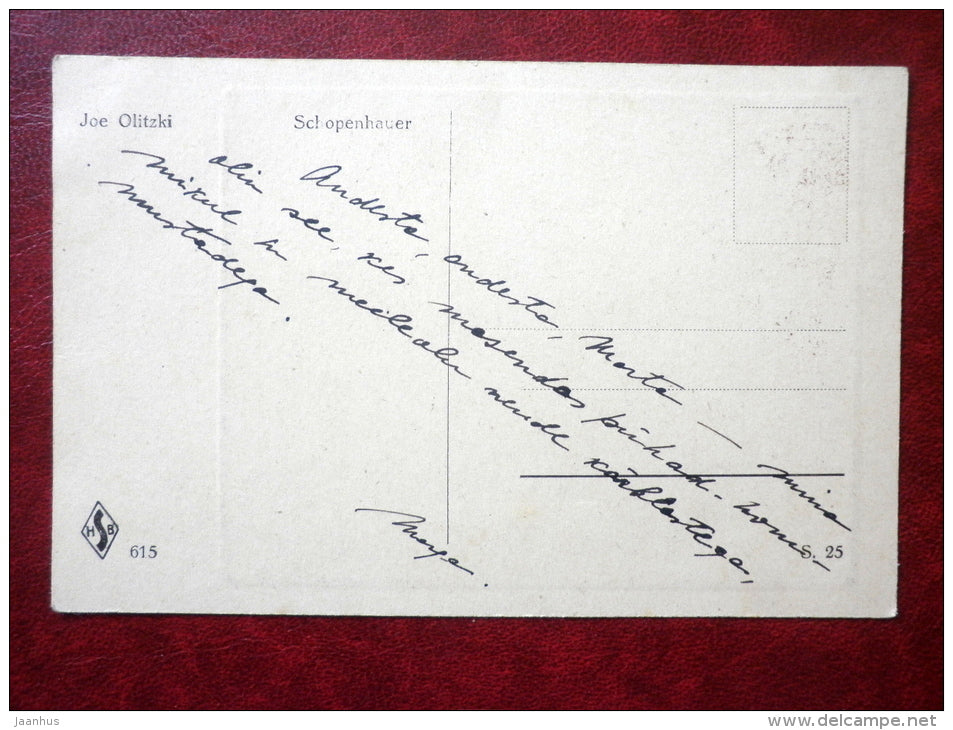 Joe Olitzki
Schopenhauer
Andesta, andesta, Marta — mina
olin see, kes masendas pühad-hom-
mikul
meeleolu nende kärblastega,
mustadega.
Maya.
H S B
615
S. 25
Jaanhus
www.delcampe.net